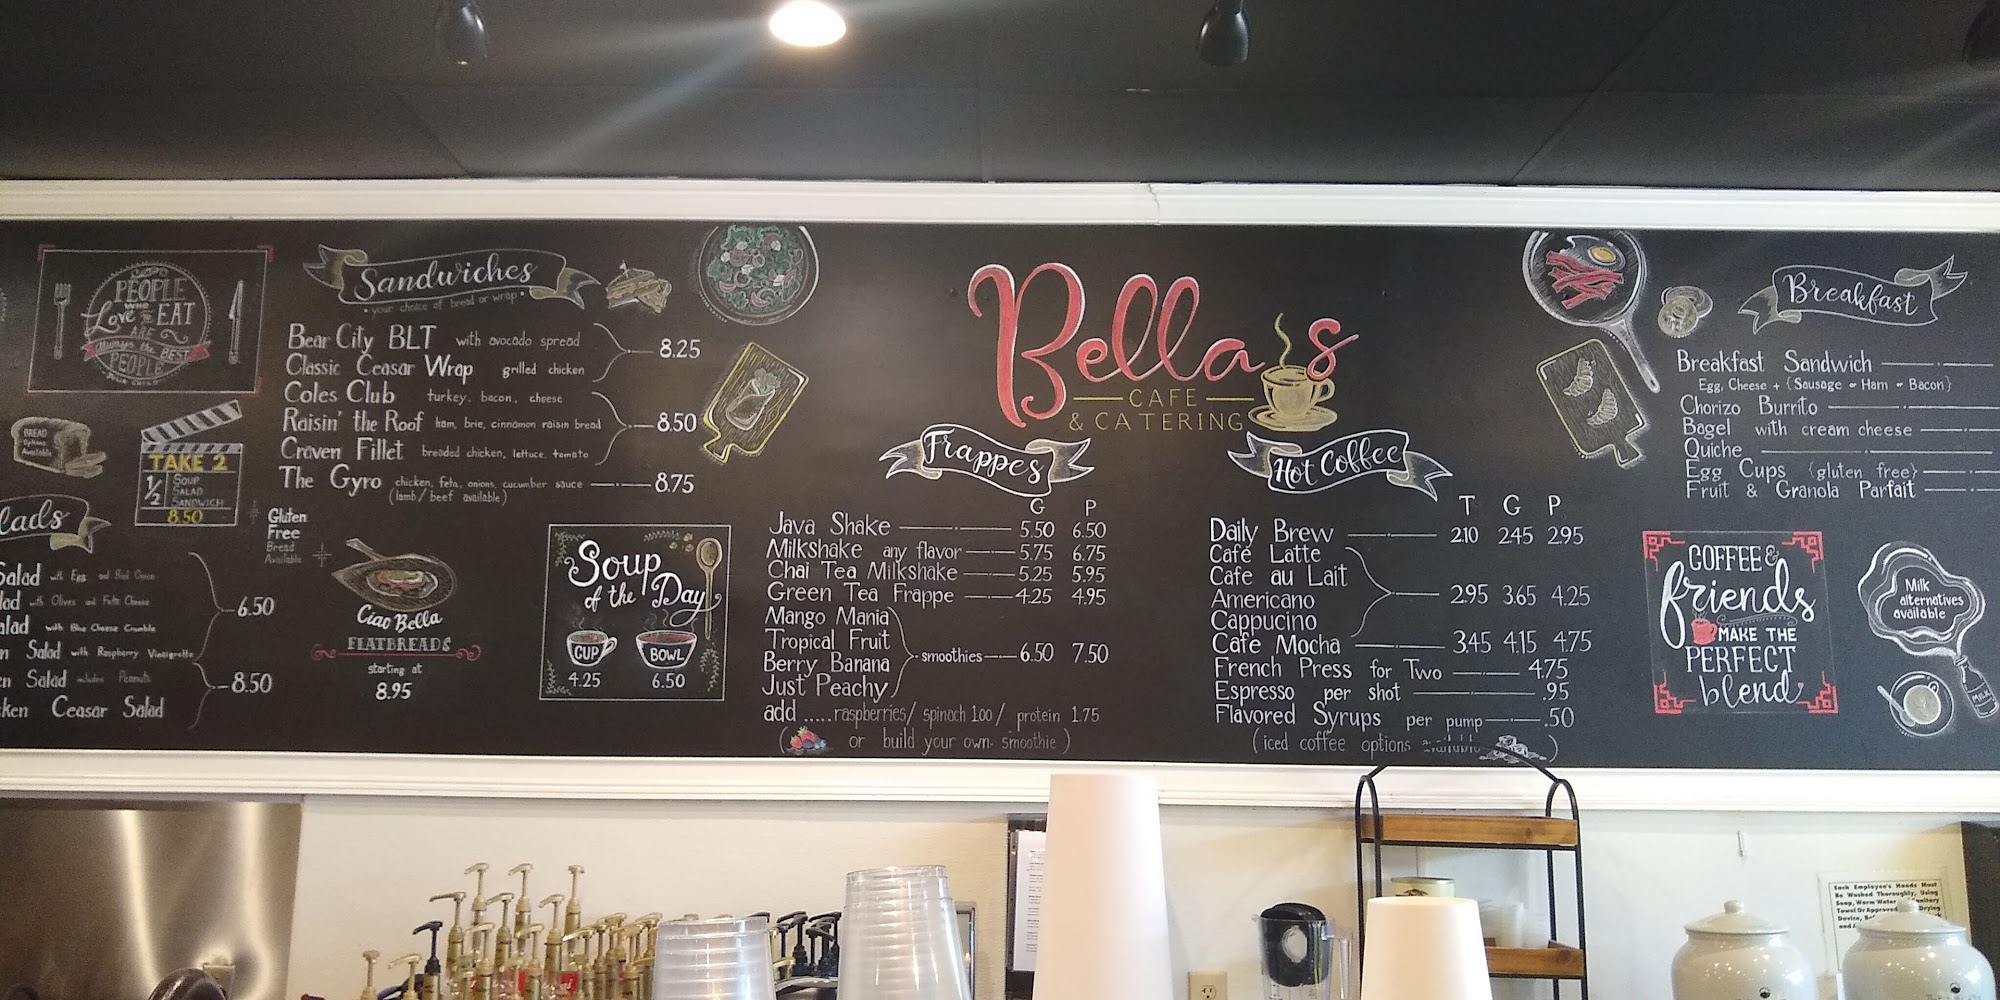 PEOPLE
WHO
Love TO EAT
ARE
Always the BEST
PEOPLE
JULIA CHILD
BREAD
Options
Available
TAKE 2
1/2
SOUP
SALAD
SANDWICH
8.50
Gluten
Free
Bread
Available
Sandwiches
• your choice of bread or wrap •
Bear City BLT with avocado spread
Classic Ceasar Wrap grilled chicken
8.25
Coles Club turkey, bacon, cheese
Raisin' the Roof ham, brie, cinnamon raisin bread
Craven Fillet breaded chicken, lettuce, tomato
8.50
The Gyro chicken, feta, onions, cucumber sauce 8.75
(lamb/beef available)
lads
Salad with Egg and Red Onion
lad with Olives and Feta Cheese
alad with Blue Cheese Crumble
6.50
n Salad with Raspberry Vinaigrette
en Salad includes Peanuts
ken Ceasar Salad
8.50
Ciao Bella
FLATBREADS
starting at
8.95
Soup
of the Day
CUP
4.25
BOWL
6.50
Bella's
CAFE
& CATERING
Frappes
G P
Java Shake 5.50 6.50
Milkshake any flavor 5.75 6.75
Chai Tea Milkshake 5.25 5.95
Green Tea Frappe 4.25 4.95
Mango Mania
Tropical Fruit
Berry Banana
Just Peachy
smoothies 6.50 7.50
add .....raspberries/ spinach 1.00/ protein 1.75
( or build your own smoothie )
Hot Coffee
T G P
Daily Brew 2.10 2.45 2.95
Cafe Latte
Cafe au Lait
Americano
Cappucino
2.95 3.65 4.25
Cafe Mocha 3.45 4.15 4.75
French Press for Two 4.75
Espresso per shot .95
Flavored Syrups per pump .50
(iced coffee options available )
Breakfast
Breakfast Sandwich
Egg, Cheese + {Sausage or Ham or Bacon}
Chorizo Burrito
Bagel with cream cheese
Quiche
Egg Cups {gluten free}
Fruit & Granola Parfait
COFFEE &
friends
MAKE THE
PERFECT
blend
Milk
alternatives
available
MILK
Each Employee's Hands Must
Be Washed Thoroughly, Using
Soap, Warm Water
Sanitary
Towel Or Approved
Drying